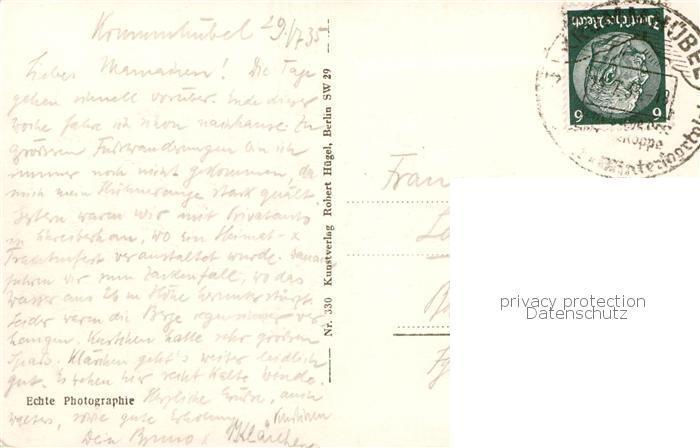 Krummhübel 29./7.35
Liebes Mamachen! Die Tage
gehen schnell vorüber. Ende dieser
Woche fahre ich schon nachhause. Zu
größeren Fußwanderungen bin ich
immer noch nicht gekommen, da
mich mein Hühnerauge stark quält.
Gestern waren wir mit Privatauto
in Schreiberhau, wo ein Heimat- u.
Trachtenfest veranstaltet wurde. Danach
fuhren wir zum Zackenfall, wo das
Wasser aus 26 m Höhe herunterstürzt.
Leider waren die Berge ver
hangen. hatte sehr großen
Spass. Klärchen geht's weiter leidlich
gut. Es wehen hier recht kalte Winde.
Herzliche Grüße, auch
weiter, sowie gute Erholung
Dein Bruno u. Klärchen
Echte Photographie
Nr. 330 Kunstverlag Robert Hügel, Berlin SW 29
Deutsches Reich
6 6
Frau
privacy protection
Datenschutz